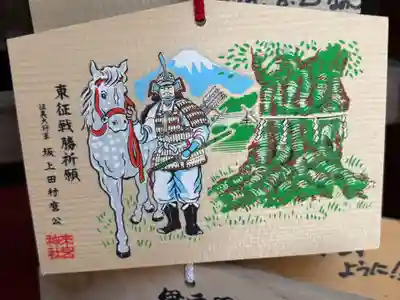 東征戦勝祈願
征夷大将軍 坂上田村麿公
来宮
神社
ように!!